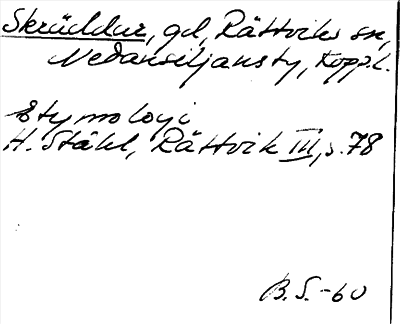 Skräddar, gd, Rättviks sn,
Nedansiljans ty, Kopp.l.
Etymologi
H. Ståhl, Rättvik III, s. 78
B.S.-60